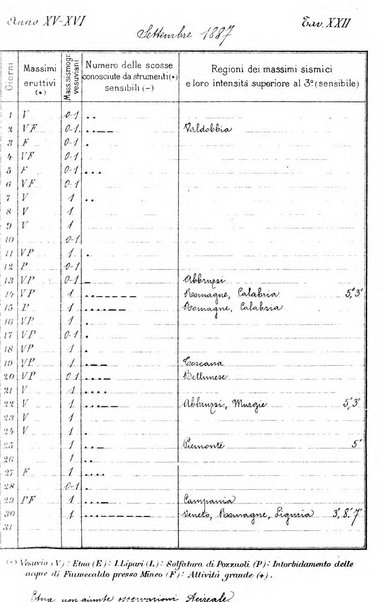 Anno XV-XVI Tav. XXII
Settembre 1887
Giorni
Massimi eruttivi (•)
Mass. sismogr. vesuviani
Numero delle scosse conosciute da strumenti (•) sensibili (–)
Regioni dei massimi sismici e loro intensità superiore al 3º (sensibile)
1 V 0-1 ..
2 VF 0-1 ..-- Valdobbia
3 F 0-1 .
4 VF 0-1 ..
5 F 0-1 ...
6 VF 0-1
7 V 1 ..
8 V 1
9 V 1
10 0-1
11 VP 1 .
12 P 0-1
13 VP 0-1 .- Abbruzzi
14 VP 1 Romagne, Calabria 5,3
15 P 1 Romagne, Calabria
16 VP 1 .
17 VP 0-1 .
18 VP 1 .
19 VP 1 Toscana
20 VP 0-1 Bellunese
21 V 1
22 V 1 Abbruzzi, Murgie 5,3
23 V 1 .
24 V 1 .
25 1 ...- Piemonte 5
26 1 ..
27 F 1
28 0-1 .
29 PF 1 Campania
30 1 Veneto, Romagne, Liguria 3,8,7
31
(•) Vesuvio (V): Etna (E): I. Lipari (L): Solfatara di Pozzuoli (P): Intorbidamento delle
acque di Fiumecaldo presso Mineo (F): Attività grande (•).
Etna non giunte osservazioni